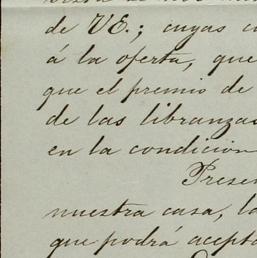 de VE.; cuyas
á la oferta, que
que el premio de
de las libranzas
en la condicion
Presen
nuestra casa, la
que podrá acepta